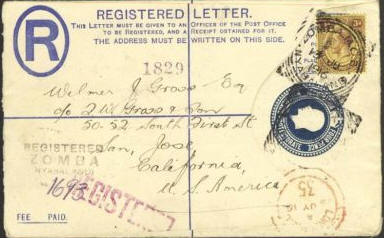 REGISTERED LETTER.
THIS LETTER MUST BE GIVEN TO AN OFFICER OF THE POST OFFICE
TO BE REGISTERED, AND A RECEIPT OBTAINED FOR IT.
THE ADDRESS MUST BE WRITTEN ON THIS SIDE.
R
1829
Wilmer J Gross Esq
c/o J W Gross & Son
50-52 South First St
San Jose
California
U. S. America
REGISTERED
ZOMBA
NYASALAND
1693
REGISTERED
35
FEE PAID.